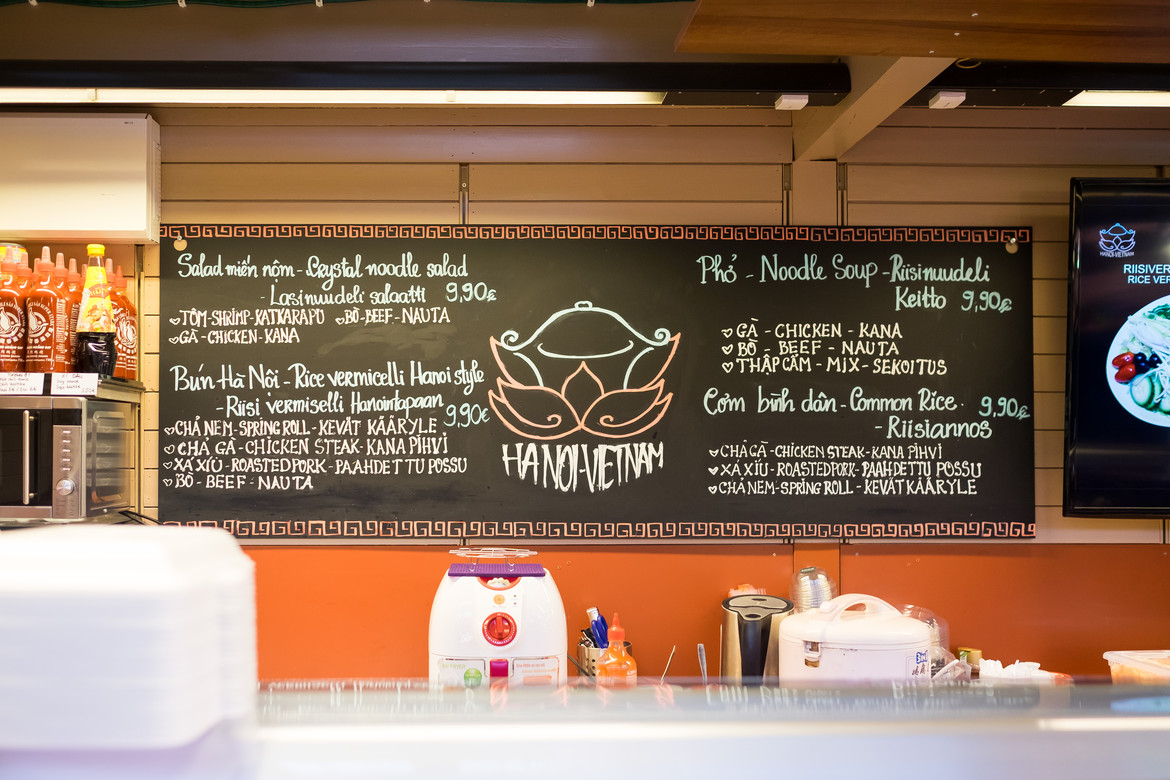 Salad miến nộm - Crystal noodle salad
- Lasinuudeli salaatti 9,90€
TÔM-SHRIMP-KATKARAPU BÒ-BEEF-NAUTA
GÀ-CHICKEN-KANA
Bún Hà Nôi - Rice vermicelli Hanoi style
- Riisi vermiselli Hanointapaan
9,90€
CHẢ NEM-SPRING ROLL - KEVÄT KÄÄRYLE
CHẢ GÀ - CHICKEN STEAK - KANA PIHVI
XÁ XÍU - ROASTED PORK - PAAHDETTU POSSU
BÒ - BEEF - NAUTA
HANOI-VIETNAM
Phở - Noodle Soup - Riisinuudeli
Keitto 9,90€
GÀ - CHICKEN - KANA
BÒ - BEEF - NAUTA
THẬP CẨM - MIX - SEKOITUS
Cơm bình dân - Common Rice 9,90€
- Riisiannos
CHẢ GÀ - CHICKEN STEAK - KANA PIHVI
XÁ XÍU - ROASTED PORK - PAAHDETTU POSSU
CHẢ NEM-SPRING ROLL - KEVÄT KÄÄRYLE
HANOI-VIETNAM
RIISIVER
RICE VER